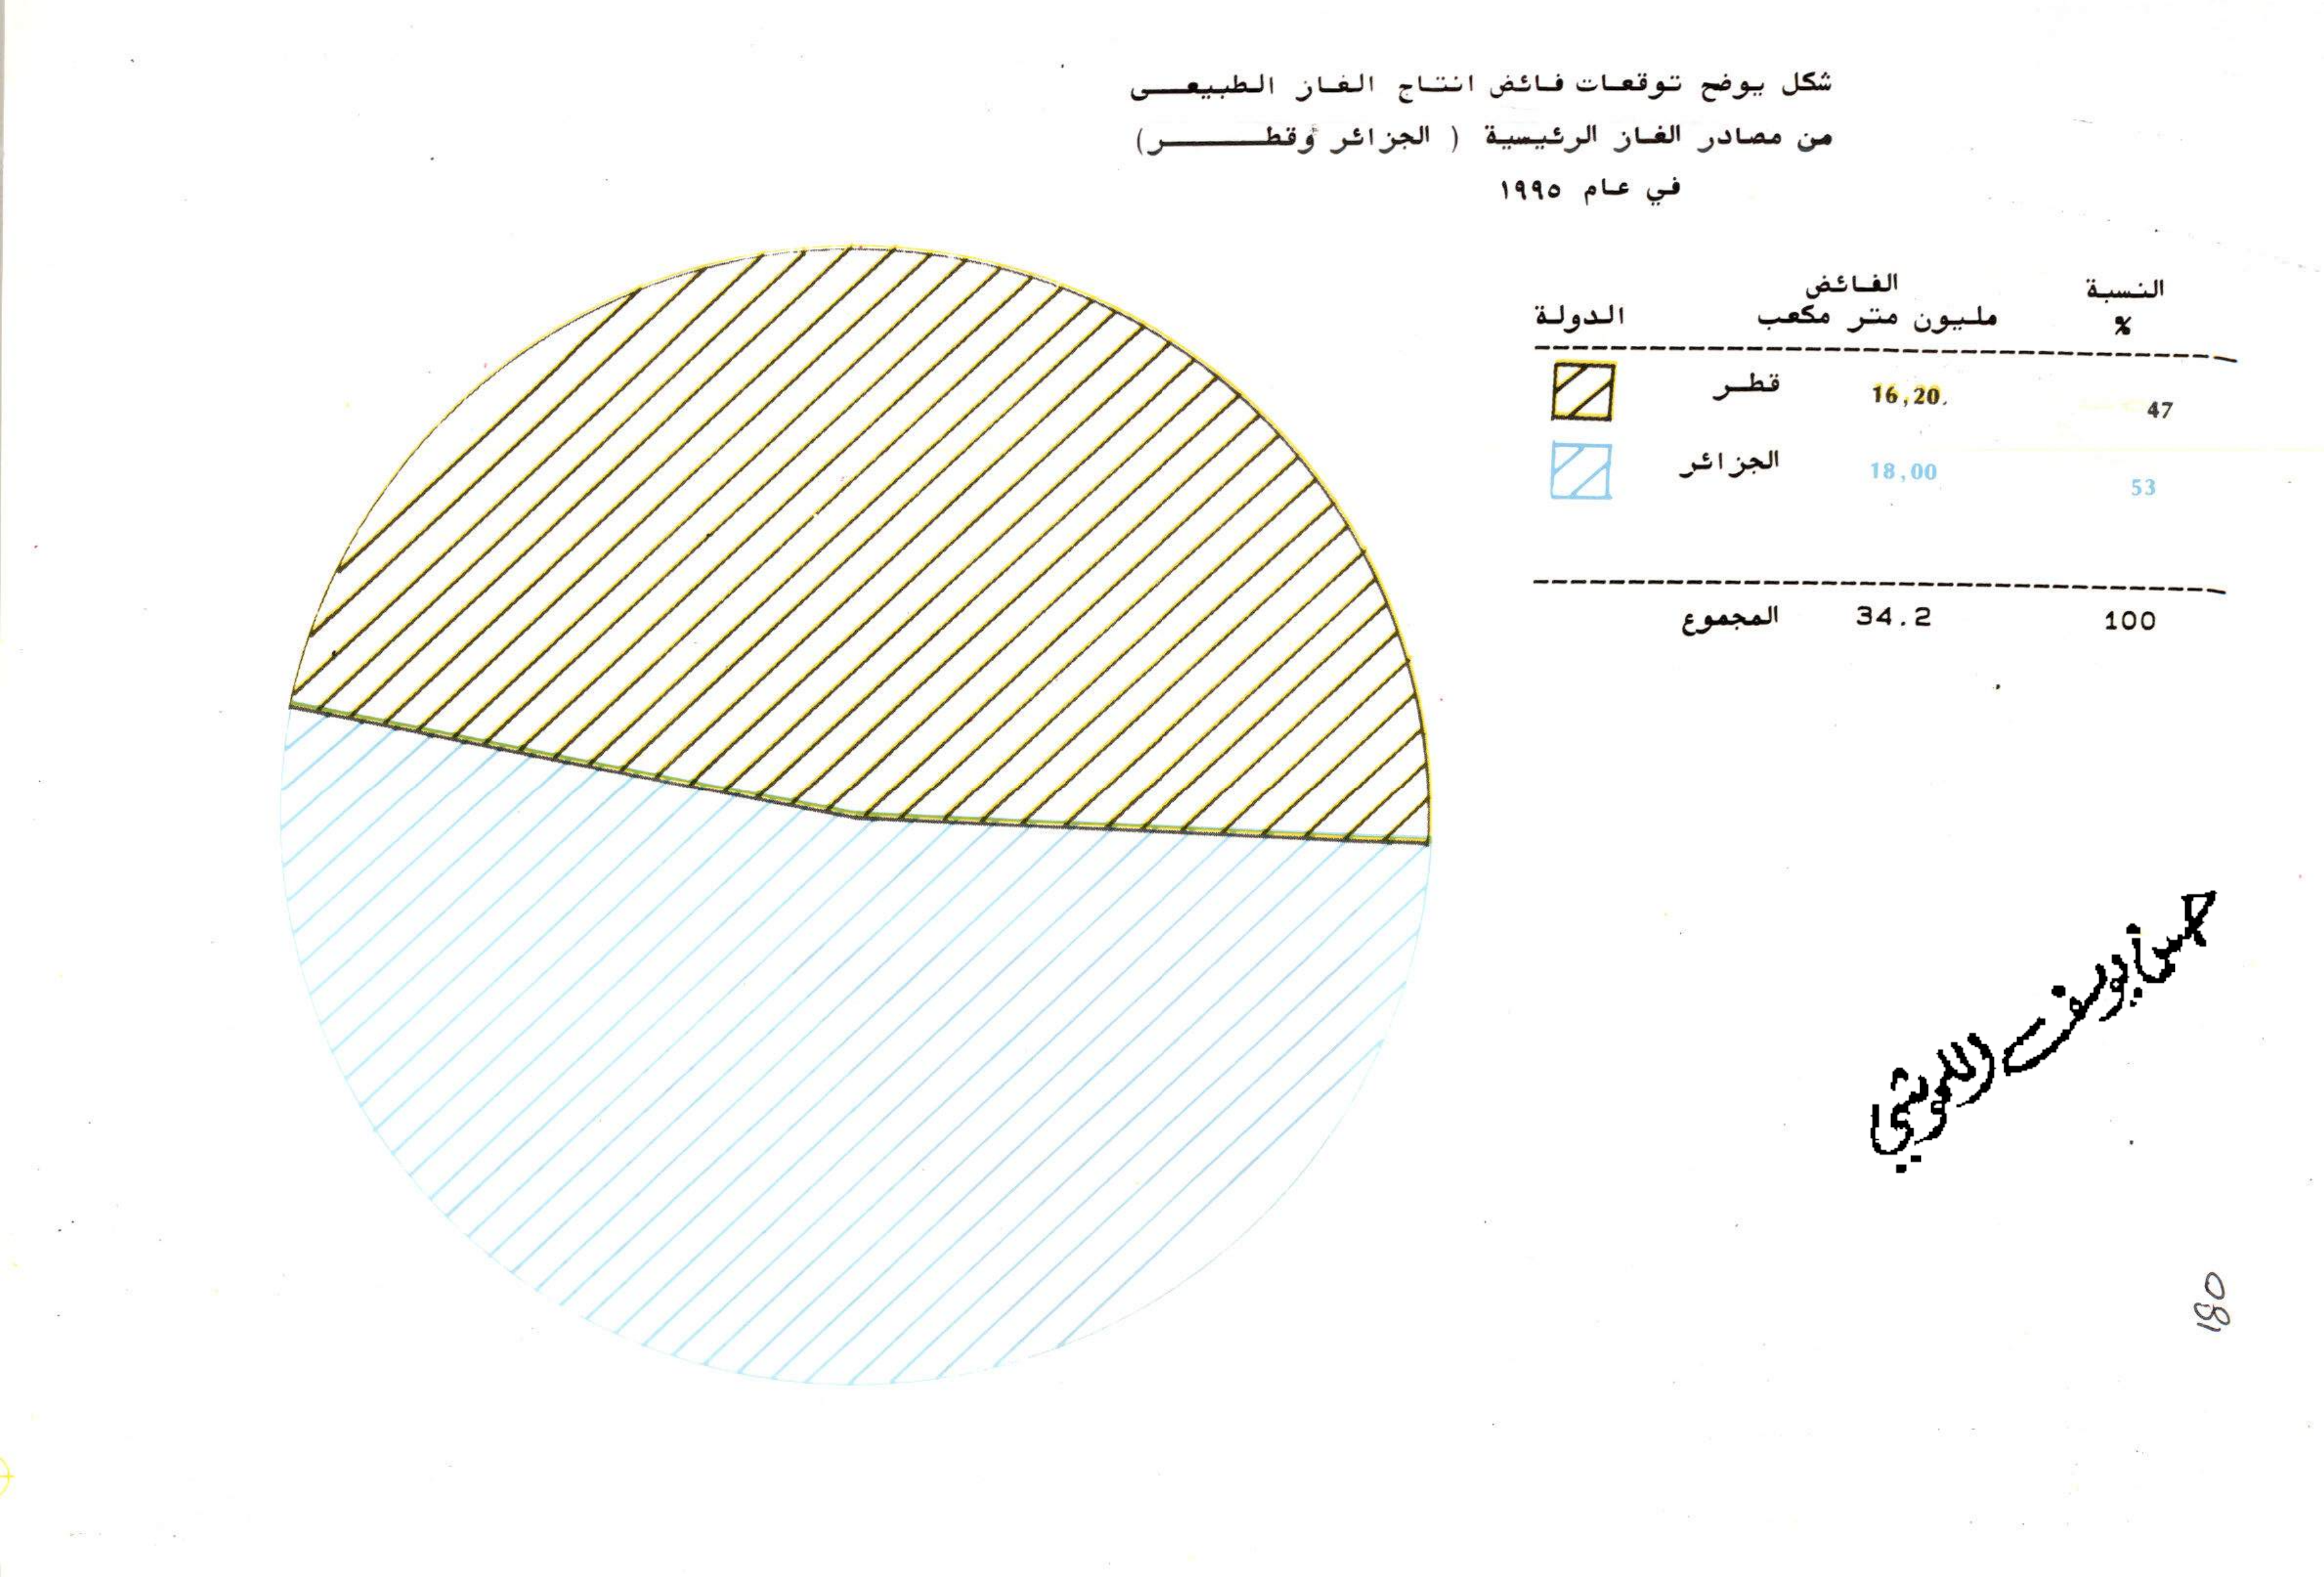 شكل يوضح توقعات فائض انتاج الغاز الطبيعى
من مصادر الغاز الرئيسية ( الجزائر وقطر)
في عام ١٩٩٥
الدولة الفائض مليون متر مكعب النسبة %
قطر 16,20. 47
الجزائر 18,00 53
المجموع 34.2 100
يوسف
180